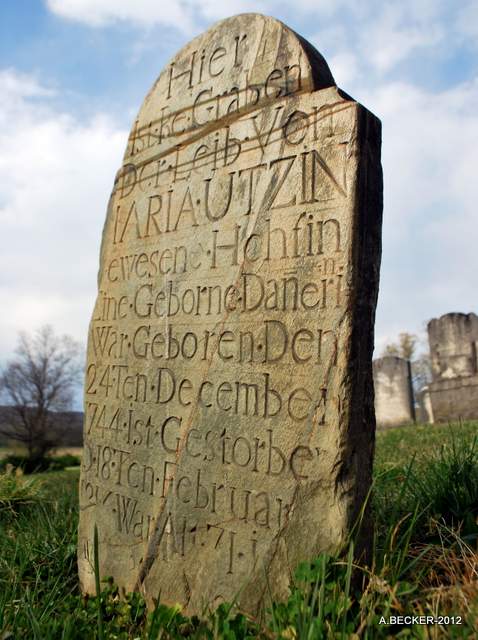 Hier
Ist·Be·Graben
Der·Leib·Von
MARIA·UTZIN
Gewesene·Hohfin
Eine·Geborne·Dañerin
War·Geboren·Den
24·Ten·December
1744·Ist·Gestorben
18·Ten·Februar
1816·War·Alt·71·
A.BECKER-2012